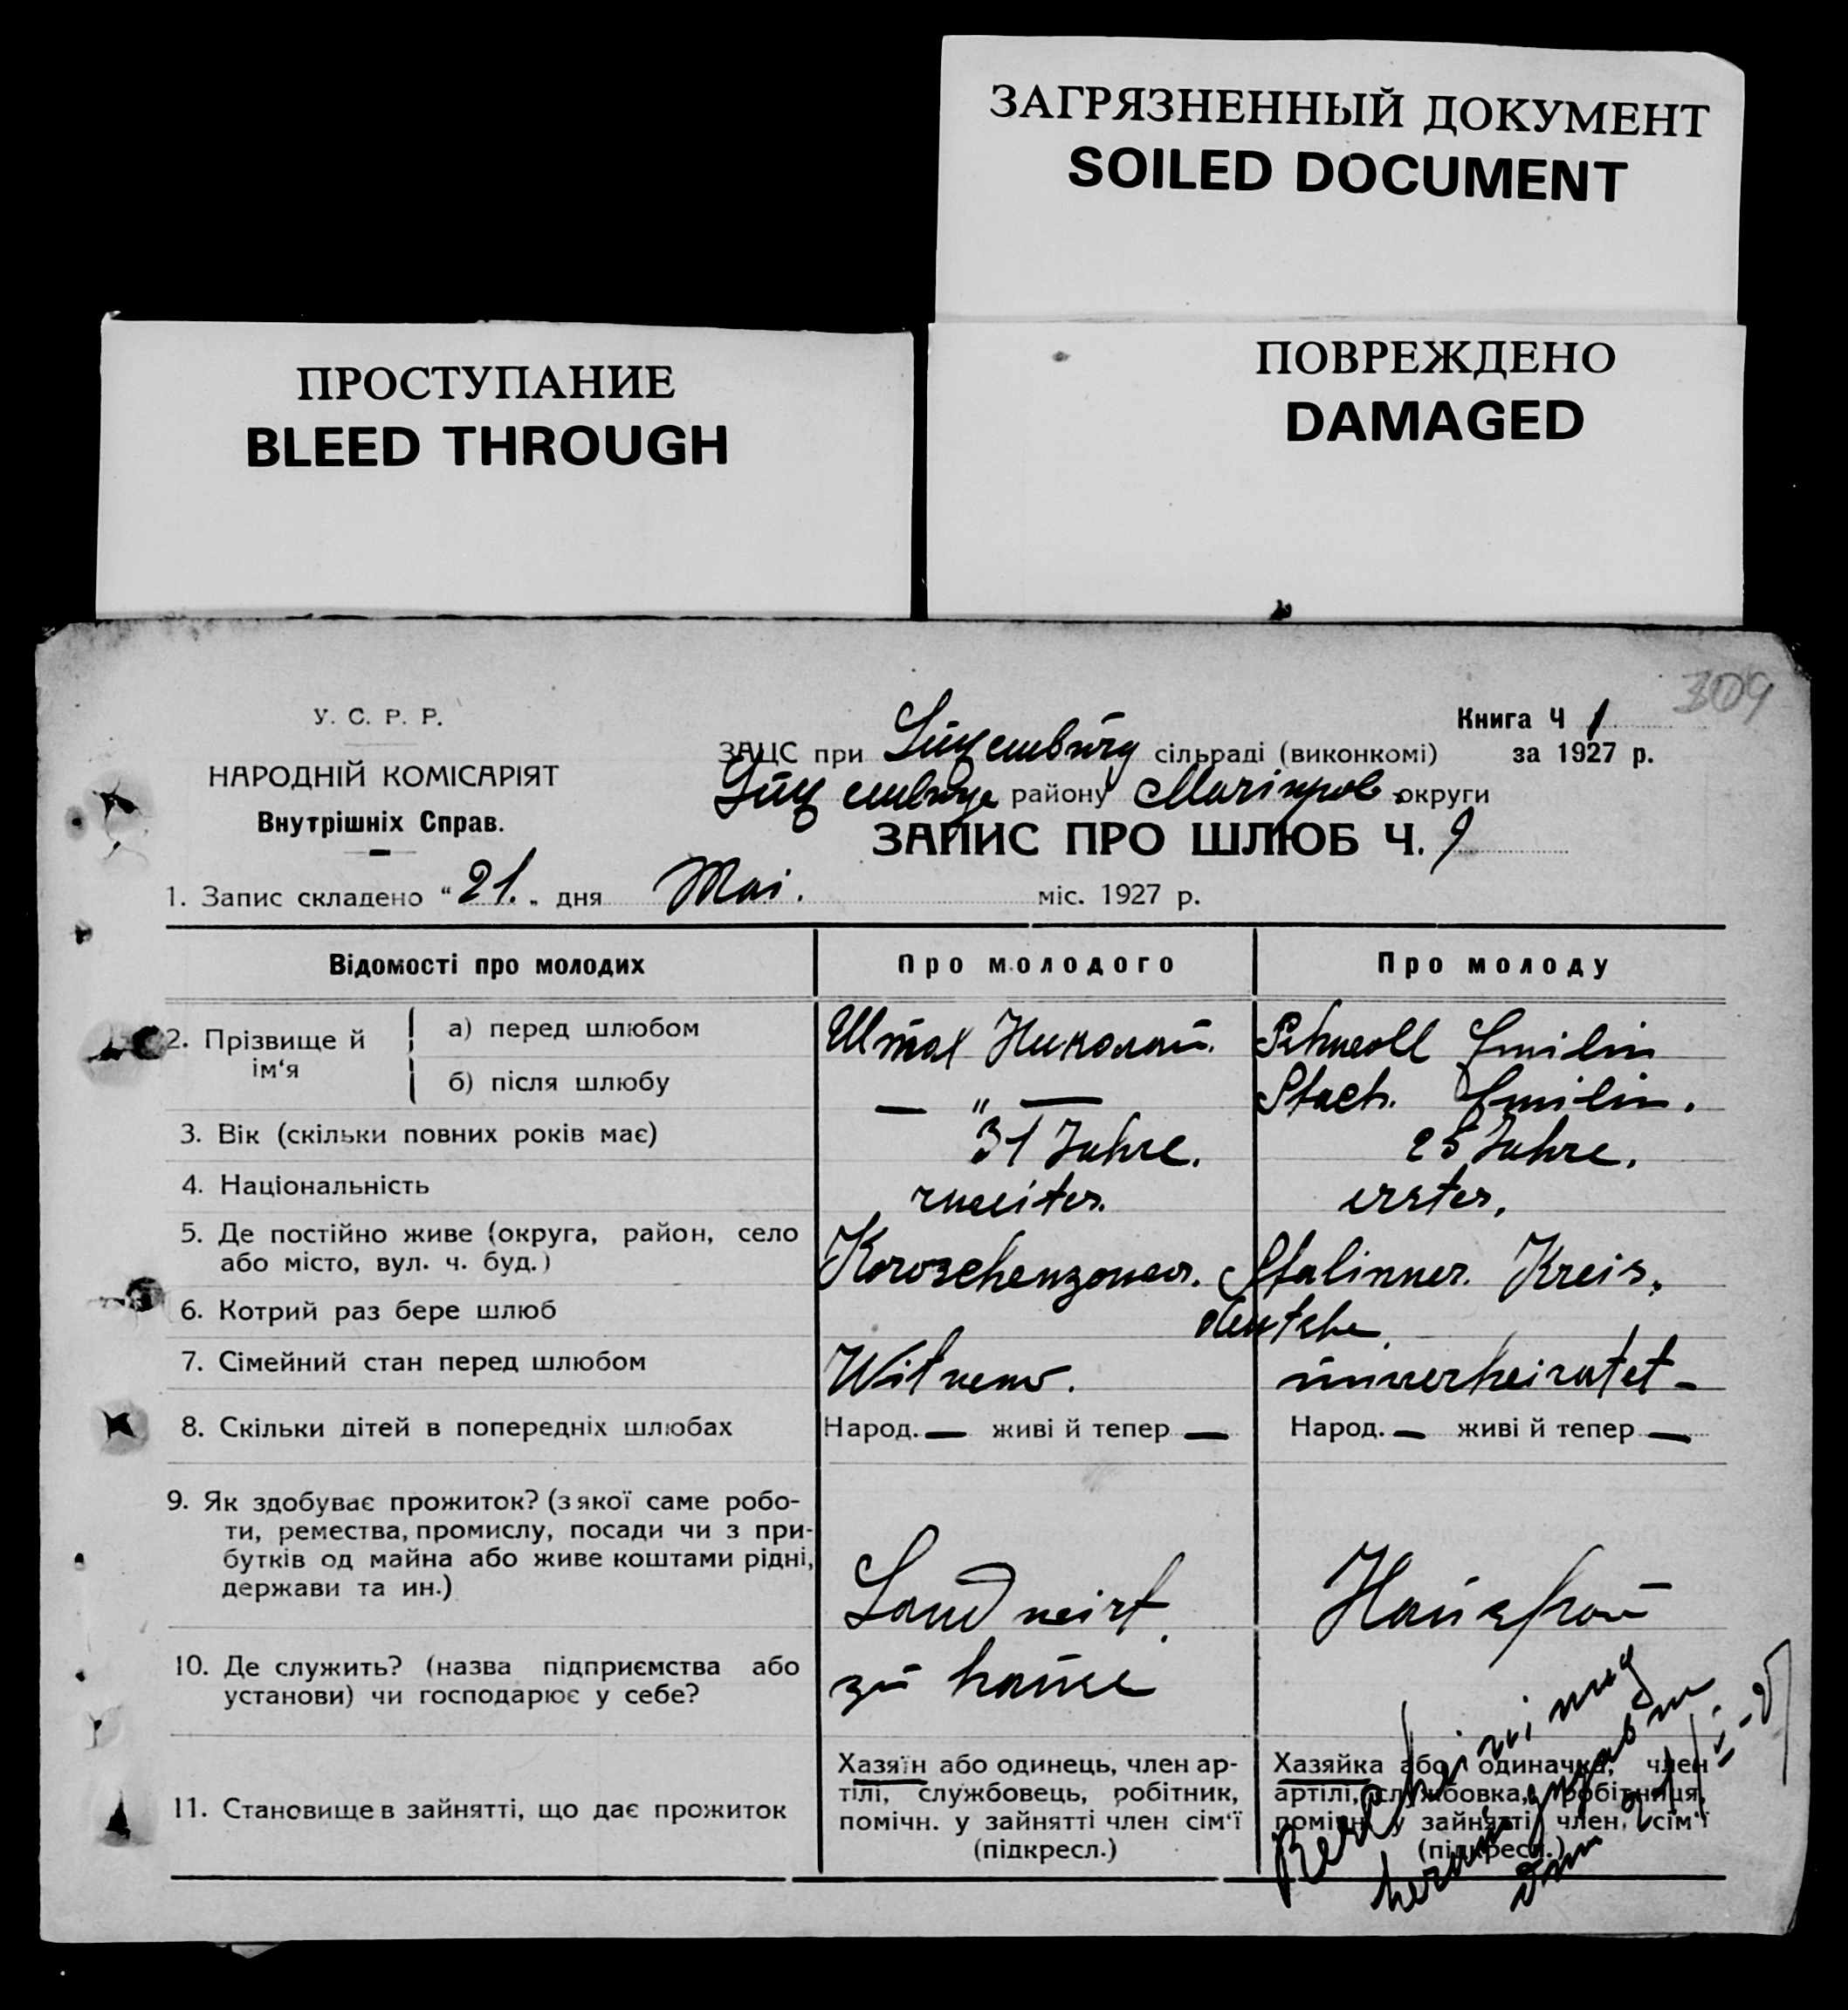 ЗАГРЯЗНЕННЫЙ ДОКУМЕНТ
SOILED DOCUMENT
ПРОСТУПАНИЕ
BLEED THROUGH
ПОВРЕЖДЕНО
DAMAGED
309
У. С. Р. Р.
НАРОДНІЙ КОМІСАРІЯТ
Внутрішніх Справ.
Книга Ч 1
за 1927 р.
ЗАЦС при сільраді (виконкомі)
району Маріупол. округи
ЗАПИС ПРО ШЛЮБ Ч. 9
1. Запис складено "21." дня Mai. міс. 1927 р.
Відомості про молодих
Про молодого
Про молоду
2. Прізвище й ім'я
а) перед шлюбом
Штах Николай.
Schnell Emilie
б) після шлюбу
— " —
Stach. Emilie.
3. Вік (скільки повних років має)
31 Jahre.
25 Jahre.
4. Національність
zweiter.
erster.
5. Де постійно живе (округа, район, село
або місто, вул. ч. буд.)
Stalinner. Kreis.
6. Котрий раз бере шлюб
deutsche
7. Сімейний стан перед шлюбом
Witwer.
unverheiratet -
8. Скільки дітей в попередніх шлюбах
Народ. — живі й тепер —
Народ. — живі й тепер —
9. Як здобуває прожиток? (з якої саме робо-
ти, ремества, промислу, посади чи з при-
бутків од майна або живе коштами рідні,
держави та ин.)
Landwirt.
Hausfrau
10. Де служить? (назва підприємства або
установи) чи господарює у себе?
zu hause
11. Становище в зайнятті, що дає прожиток
Хазяїн або одинець, член ар-
тілі, службовець, робітник,
помічн. у зайнятті член сім'ї
(підкресл.)
Хазяйка або одиначка, член
артілі, службовка, робітниця,
помічн. у зайнятті член, сім'ї
(підкресл.)